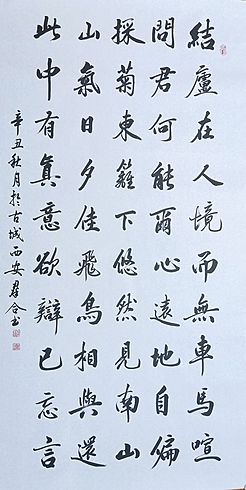 結廬在人境而無車馬喧
問君何能爾心遠地自偏
採菊東籬下悠然見南山
山氣日夕佳飛鳥相與還
此中有真意欲辯已忘言
辛丑秋月於古城西安君合书